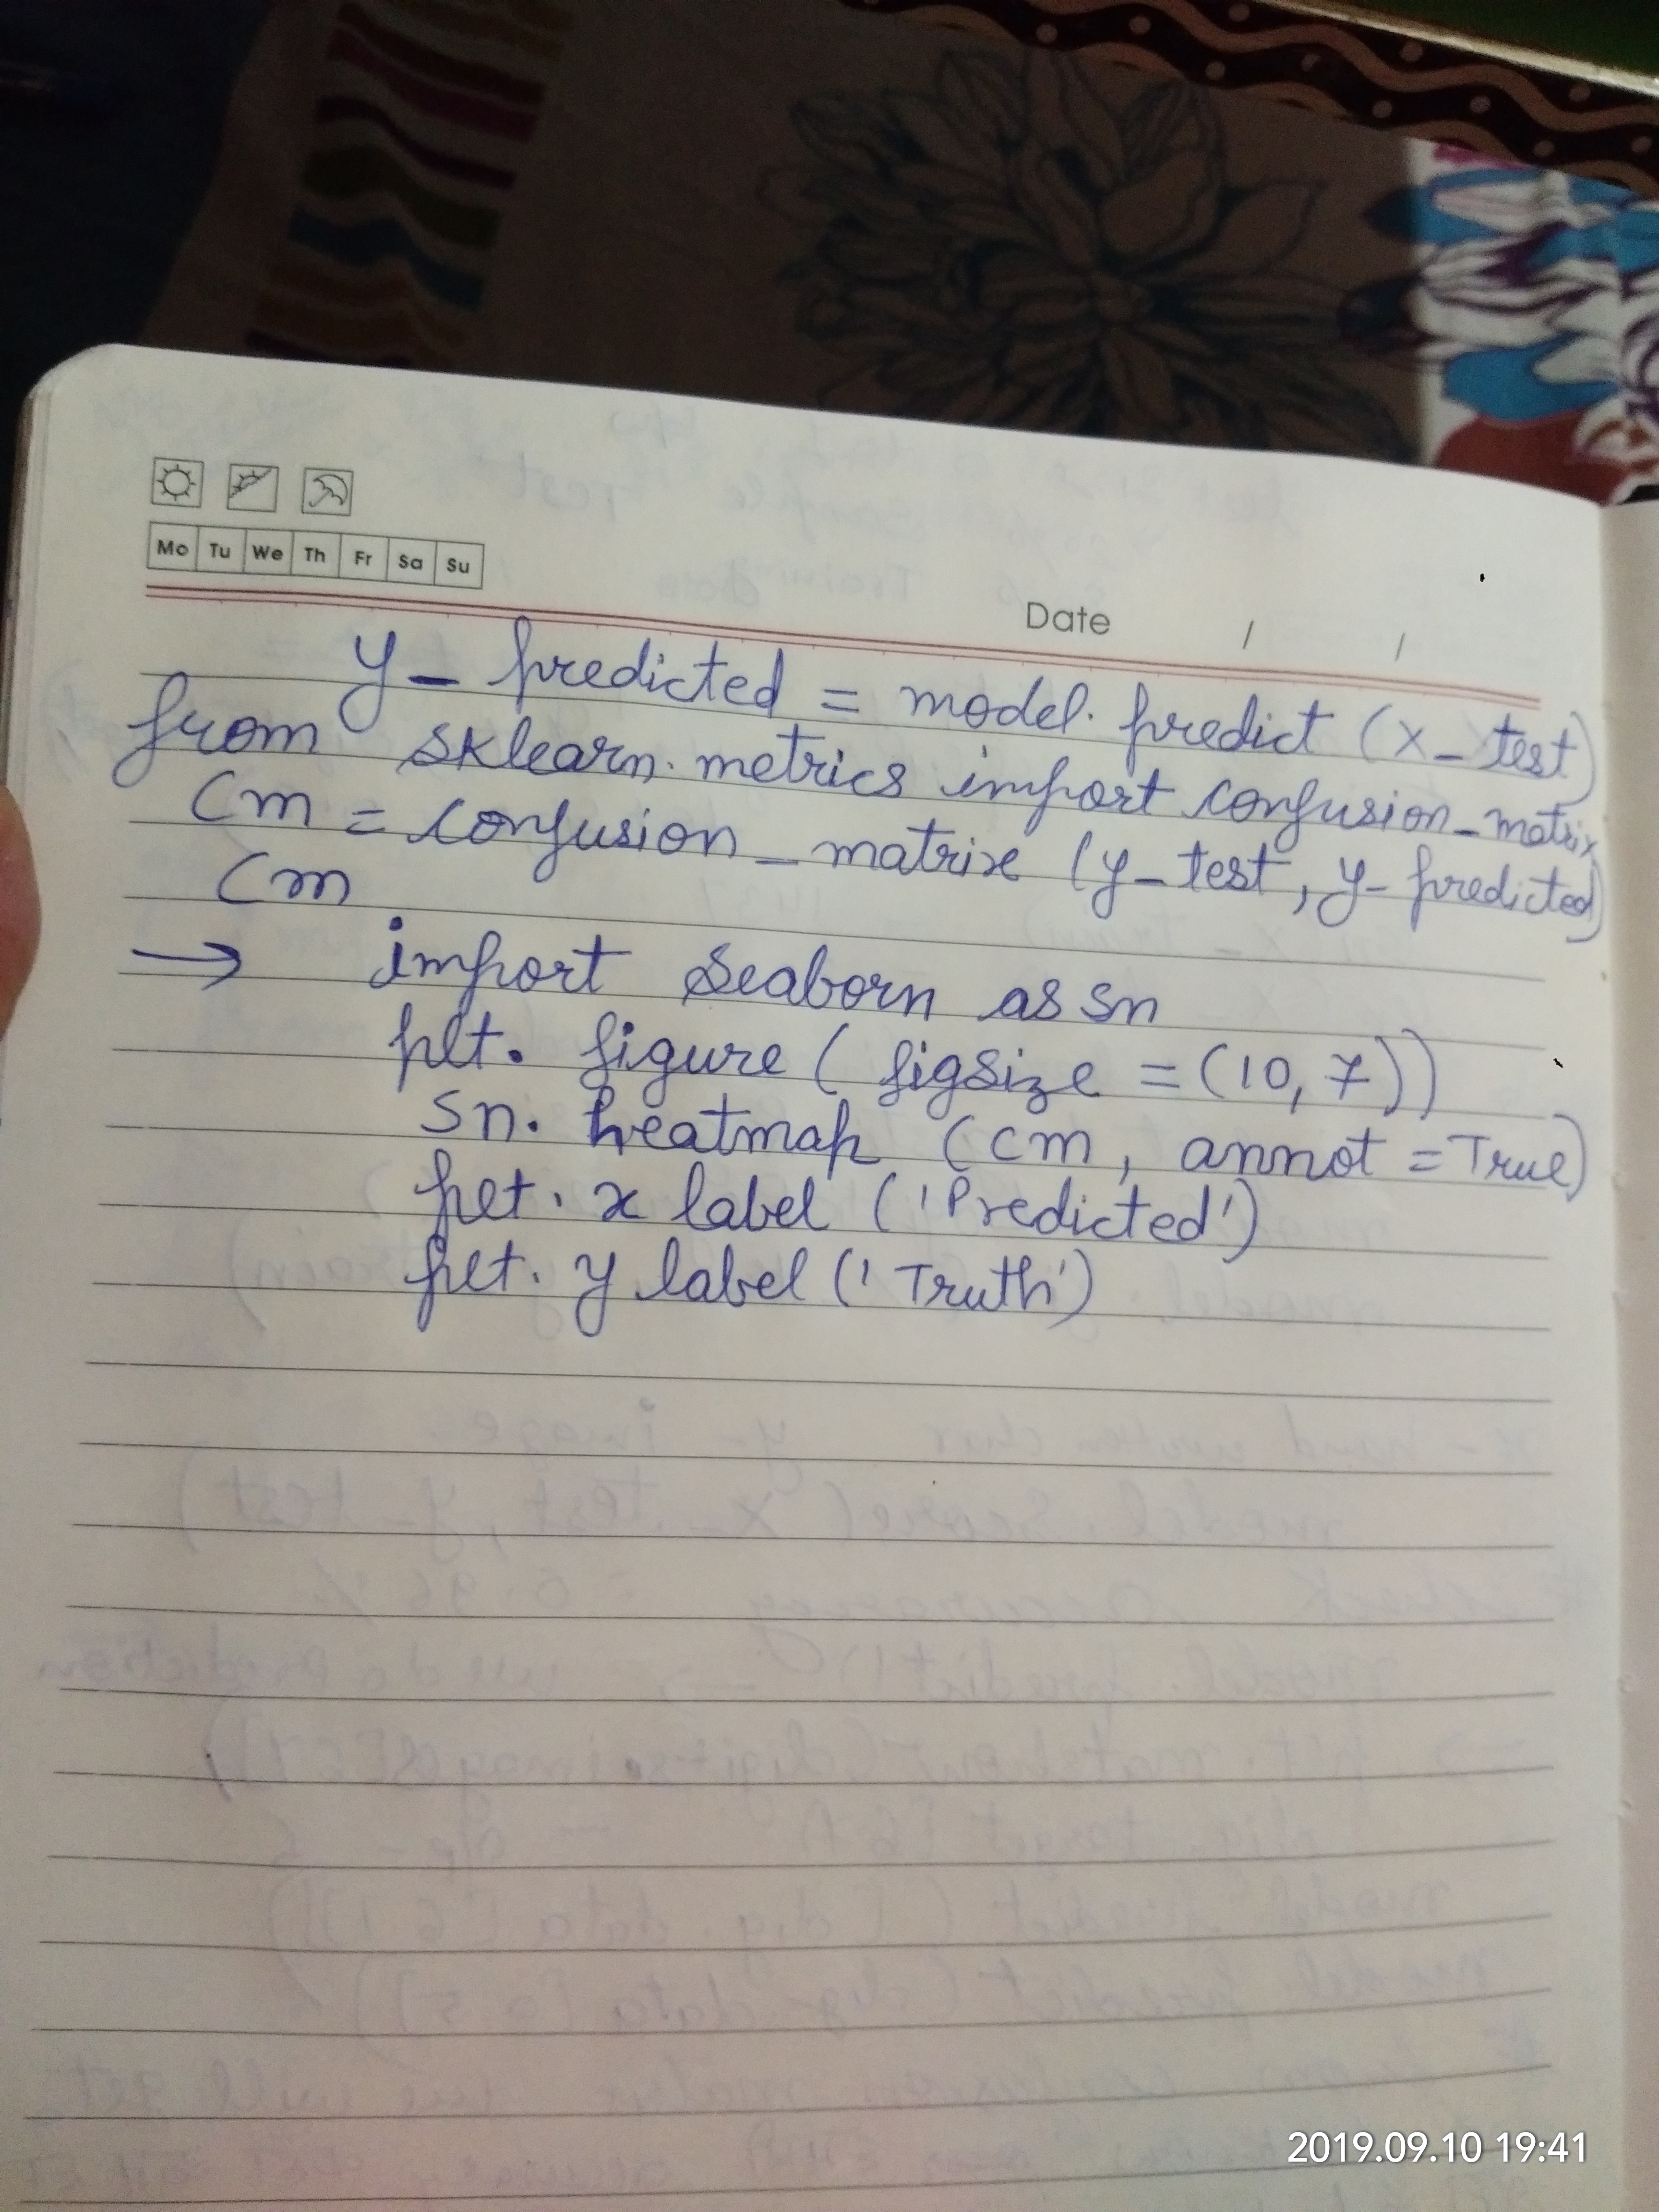 Mo Tu We Th Fr Sa Su
Date / /
y_ predicted = model. predict (x_test)
from sklearn. metrics import confusion_matrix
Cm = confusion_matrix (y_test, y_predicted)
Cm
→ import seaborn as sn
plt. figure ( figsize = (10, 7))
sn. heatmap (cm, annot = True)
plt. x label ('Predicted')
plt. y label (' Truth')
2019.09.10 19:41